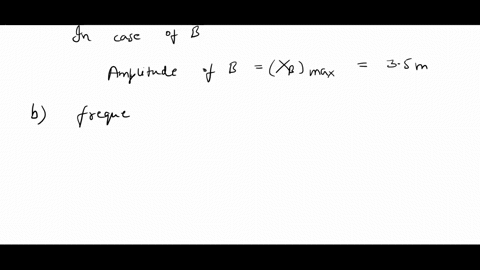 In case of B
Amplitude of B = (X_B) max = 3.5 m
b) freque